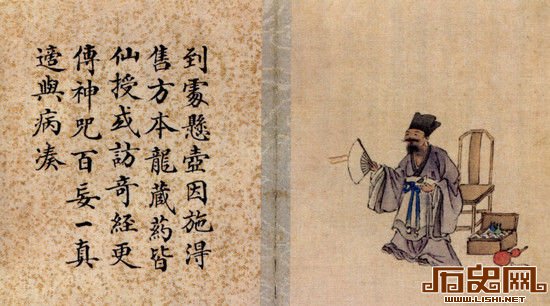 到處懸壺因施淂
售方本龍藏葯皆
仙授或訪奇經更
傳神咒百妄一真
適與病湊
历史网
WWW.LISHI.NET